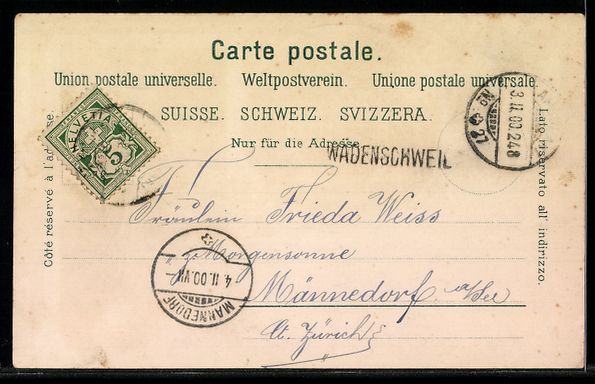 Carte postale.
Union postale universelle. Weltpostverein. Unione postale universale.
SUISSE. SCHWEIZ. SVIZZERA.
Nur für die Adresse.
Côté réservé à l'adresse.
Lato riservato all' indirizzo.
HELVETIA
5
WÄDENSCHWEIL
3.II.00.248
No 27
Fräulein Frieda Weiss
z. Morgensonne
Männedorf a/See
Ct. Zürich
4.II.00.VII
MÄNNEDORF